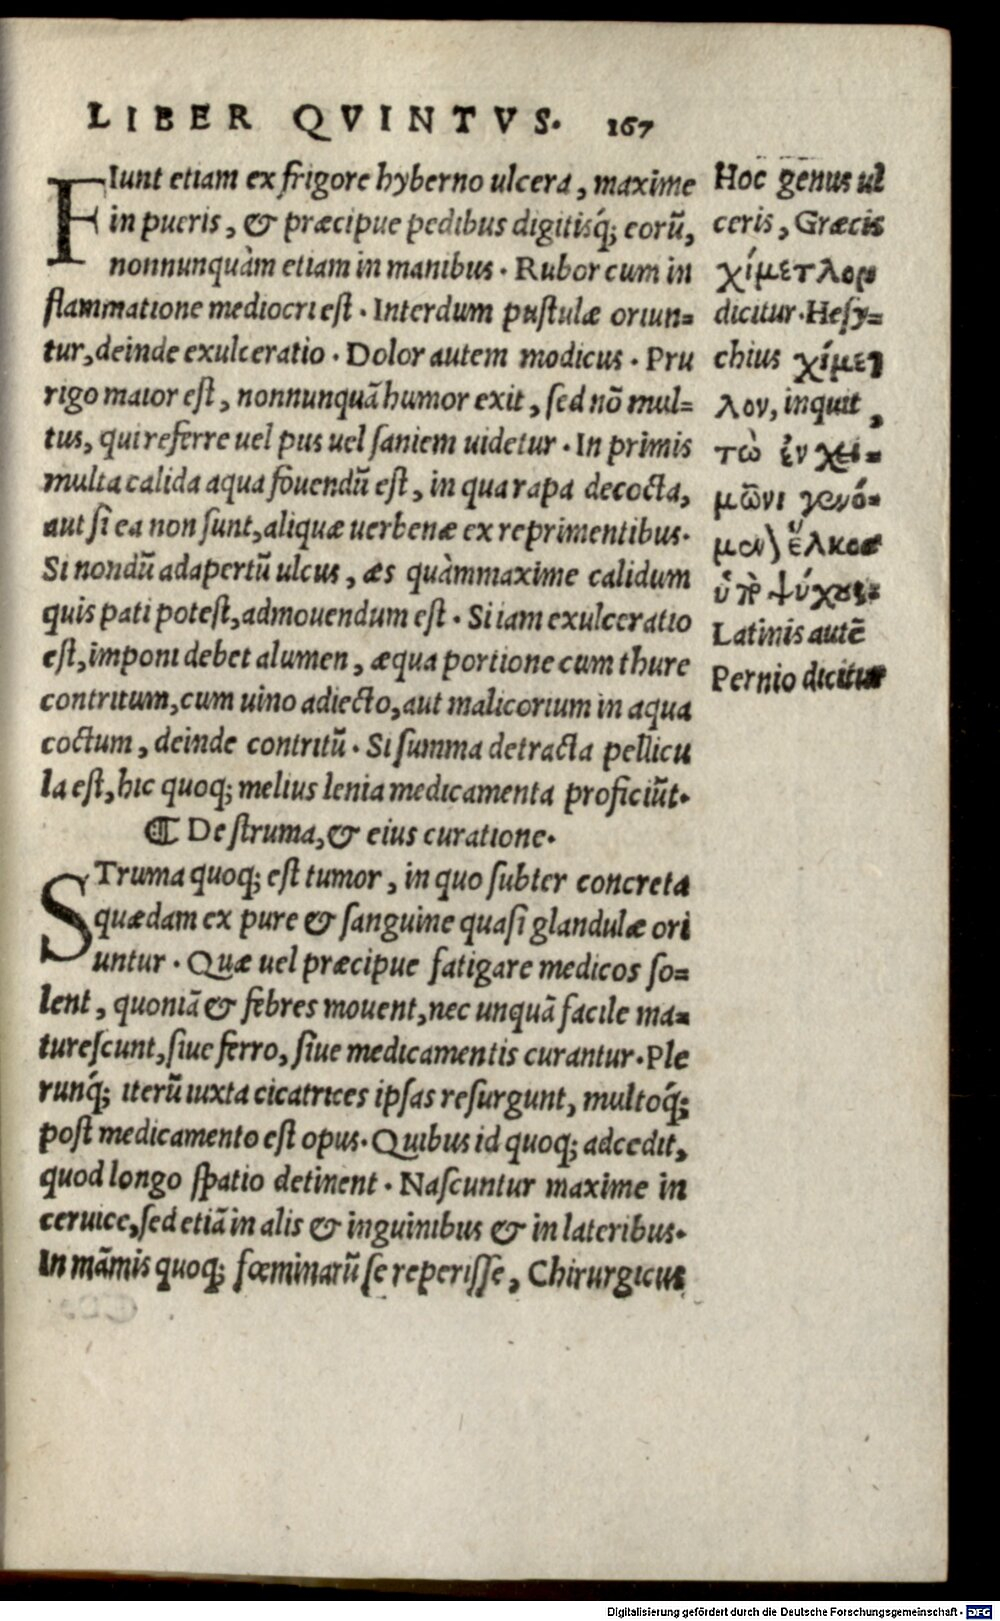 LIBER QVINTVS. 167
FIunt etiam ex frigore hyberno ulcera, maxime
in pueris, & præcipue pedibus digitisq́; eorũ,
nonnunquàm etiam in manibus. Rubor cum in
flammatione mediocri est. Interdum pustulæ oriun=
tur, deinde exulceratio. Dolor autem modicus. Pru
rigo maior est, nonnunquã humor exit, sed nõ mul=
tus, qui referre uel pus uel saniem uidetur. In primis
multa calida aqua fouendũ est, in qua rapa decocta,
aut si ea non sunt, aliquæ uerbenæ ex reprimentibus.
Si nondũ adapertũ ulcus, æs quàmmaxime calidum
quis pati potest, admouendum est. Si iam exulceratio
est, imponi debet alumen, æqua portione cum thure
contritum, cum uino adiecto, aut malicorium in aqua
coctum, deinde contritũ. Si summa detracta pellicu
la est, hic quoq; melius lenia medicamenta proficiũt.
¶ De struma, & eius curatione.
STruma quoq; est tumor, in quo subter concreta
quædam ex pure & sanguine quasi glandulæ ori
untur. Quæ uel præcipue fatigare medicos so=
lent, quoniã & febres mouent, nec unquã facile ma=
turescunt, siue ferro, siue medicamentis curantur. Ple
runq́; iterũ iuxta cicatrices ipsas resurgunt, multoq́;
post medicamento est opus. Quibus id quoq; adcedit,
quod longo spatio detinent. Nascuntur maxime in
ceruice, sed etiã in alis & inguinibus & in lateribus.
In mãmis quoq; fœminarũ se reperisse, Chirurgicus
Hoc genus ul
ceris, Græcis
χίμετλον
dicitur. Hesy=
chius χίμετ
λον, inquit,
τὼ ἐν χει=
μῶνι γενό=
μεν) ἕλκος
ὑπὸ ψύχους.
Latinis autẽ
Pernio dicitur
Digitalisierung gefördert durch die Deutsche Forschungsgemeinschaft - DFG